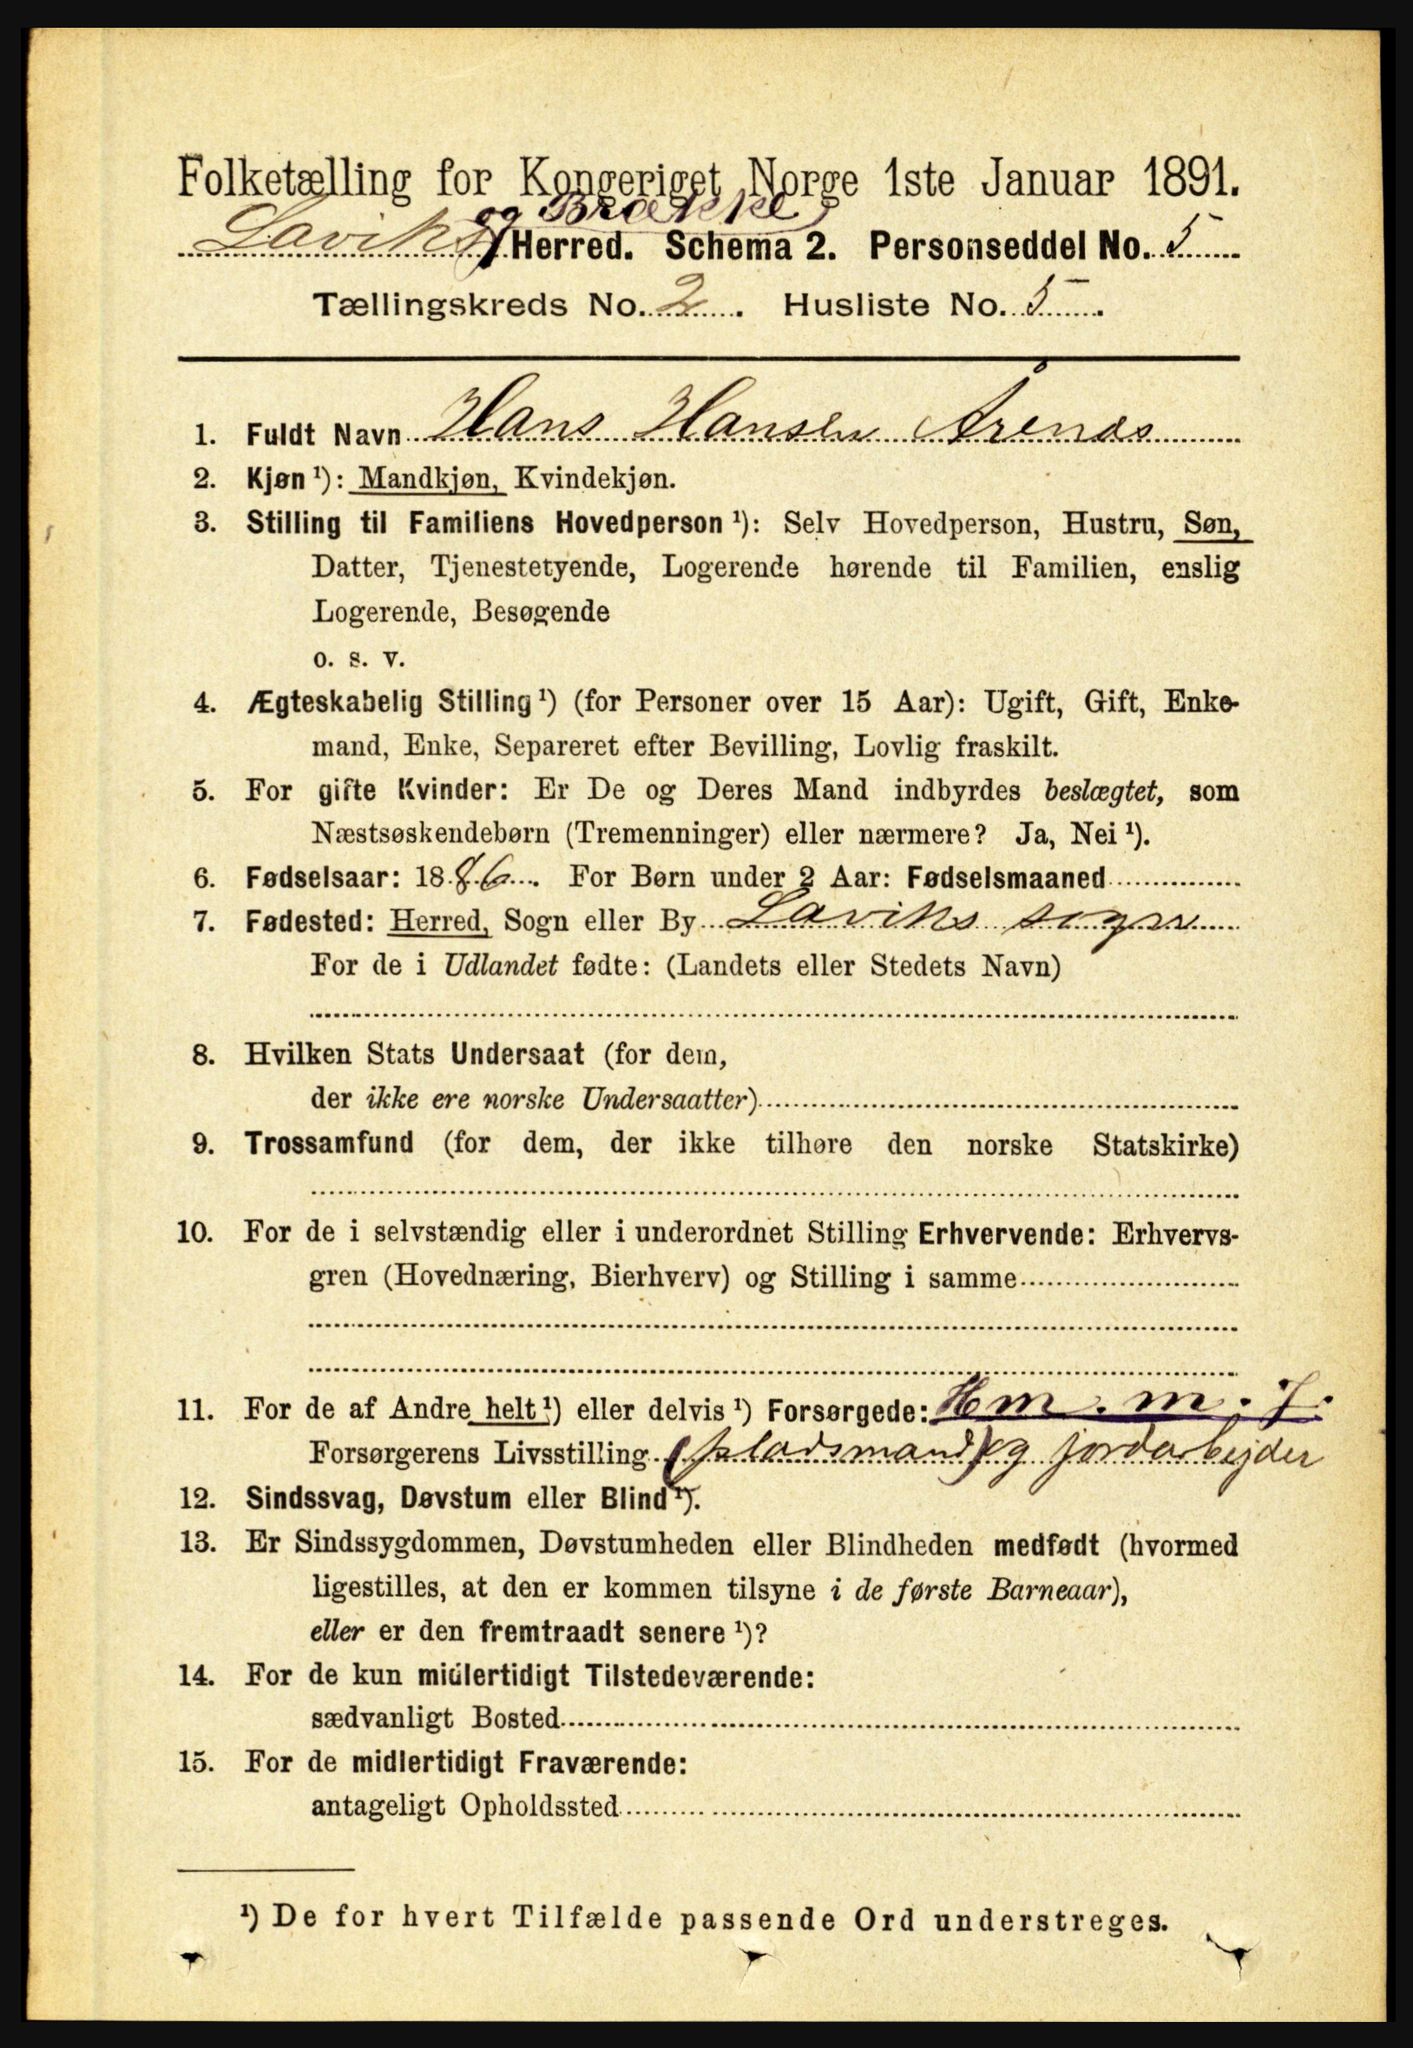 Folketælling for Kongeriget Norge 1ste Januar 1891.
og Brække
Laviks Herred. Schema 2. Personseddel No. 5
Tællingskreds No. 2. Husliste No. 5.
1. Fuldt Navn Hans Hansen Årenæs
2. Kjøn ¹): Mandkjøn, Kvindekjøn.
3. Stilling til Familiens Hovedperson ¹): Selv Hovedperson, Hustru, Søn,
Datter, Tjenestetyende, Logerende hørende til Familien, enslig
Logerende, Besøgende
o. s. v.
4. Ægteskabelig Stilling ¹) (for Personer over 15 Aar): Ugift, Gift, Enke-
mand, Enke, Separeret efter Bevilling, Lovlig fraskilt.
5. For gifte Kvinder: Er De og Deres Mand indbyrdes beslægtet, som
Næstsøskendebørn (Tremenninger) eller nærmere? Ja, Nei ¹).
6. Fødselsaar: 1886. For Børn under 2 Aar: Fødselsmaaned
7. Fødested: Herred, Sogn eller By Laviks sogn
For de i Udlandet fødte: (Landets eller Stedets Navn)
8. Hvilken Stats Undersaat (for dem,
der ikke ere norske Undersaatter)
9. Trossamfund (for dem, der ikke tilhøre den norske Statskirke)
10. For de i selvstændig eller i underordnet Stilling Erhvervende: Erhvervs-
gren (Hovednæring, Bierhverv) og Stilling i samme
11. For de af Andre helt ¹) eller delvis ¹) Forsørgede: Hm. m. J.
Forsørgerens Livsstilling (pladsmand) og jordarbejder
12. Sindssvag, Døvstum eller Blind ¹).
13. Er Sindssygdommen, Døvstumheden eller Blindheden medfødt (hvormed
ligestilles, at den er kommen tilsyne i de første Barneaar),
eller er den fremtraadt senere ¹)?
14. For de kun midlertidigt Tilstedeværende:
sædvanligt Bosted
15. For de midlertidigt Fraværende:
antageligt Opholdssted
¹) De for hvert Tilfælde passende Ord understreges.